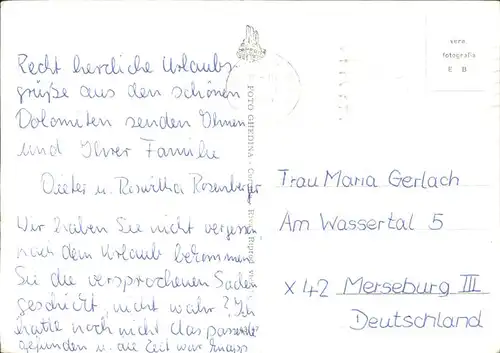 Recht herzliche Urlaubs-
grüße aus den schönen
Dolomiten senden Ihnen
und Ihrer Familie
Dieter u. Roswitha Rosenberger
Wir haben Sie nicht vergessen
nach dem Urlaub bekommen
Sie die versprochenen Sachen
geschickt, nicht wahr? Ich
hatte noch nicht das passende
gefunden u. die Zeit war knapp
FOTO GHEDINA - Cortina
vera
fotografia
Frau Maria Gerlach
Am Wassertal 5
X 42 Merseburg III
Deutschland